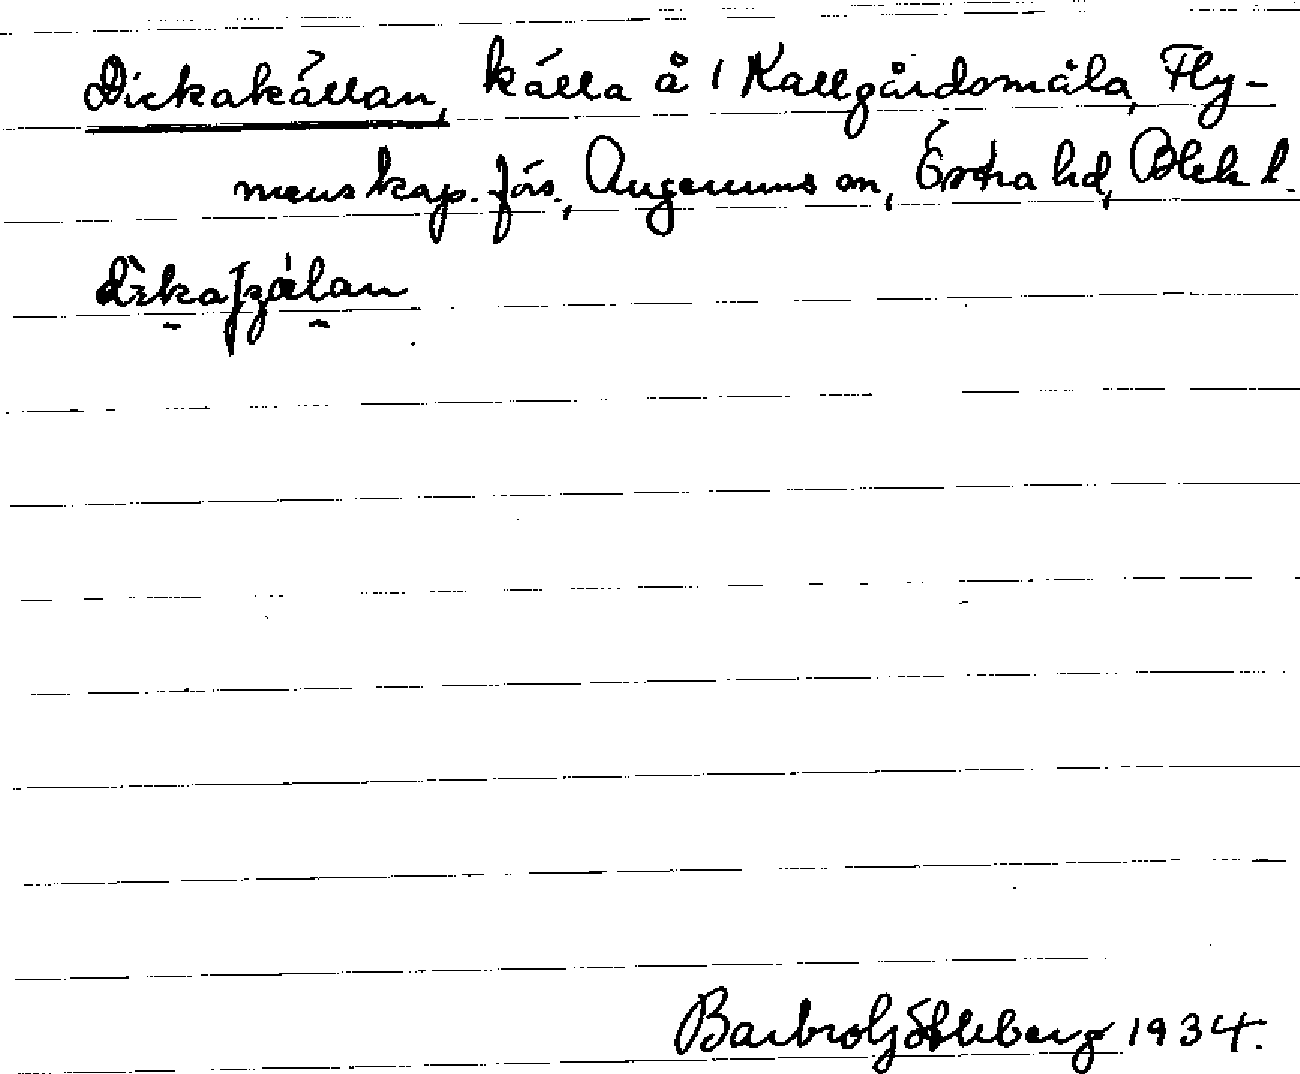 Dickakällan, källa å 1 Kallgårdsmåla, Fly-
menskap. förs., Augerums sn, Östra hd, Blek l.
Barbro Götleberg 1934.